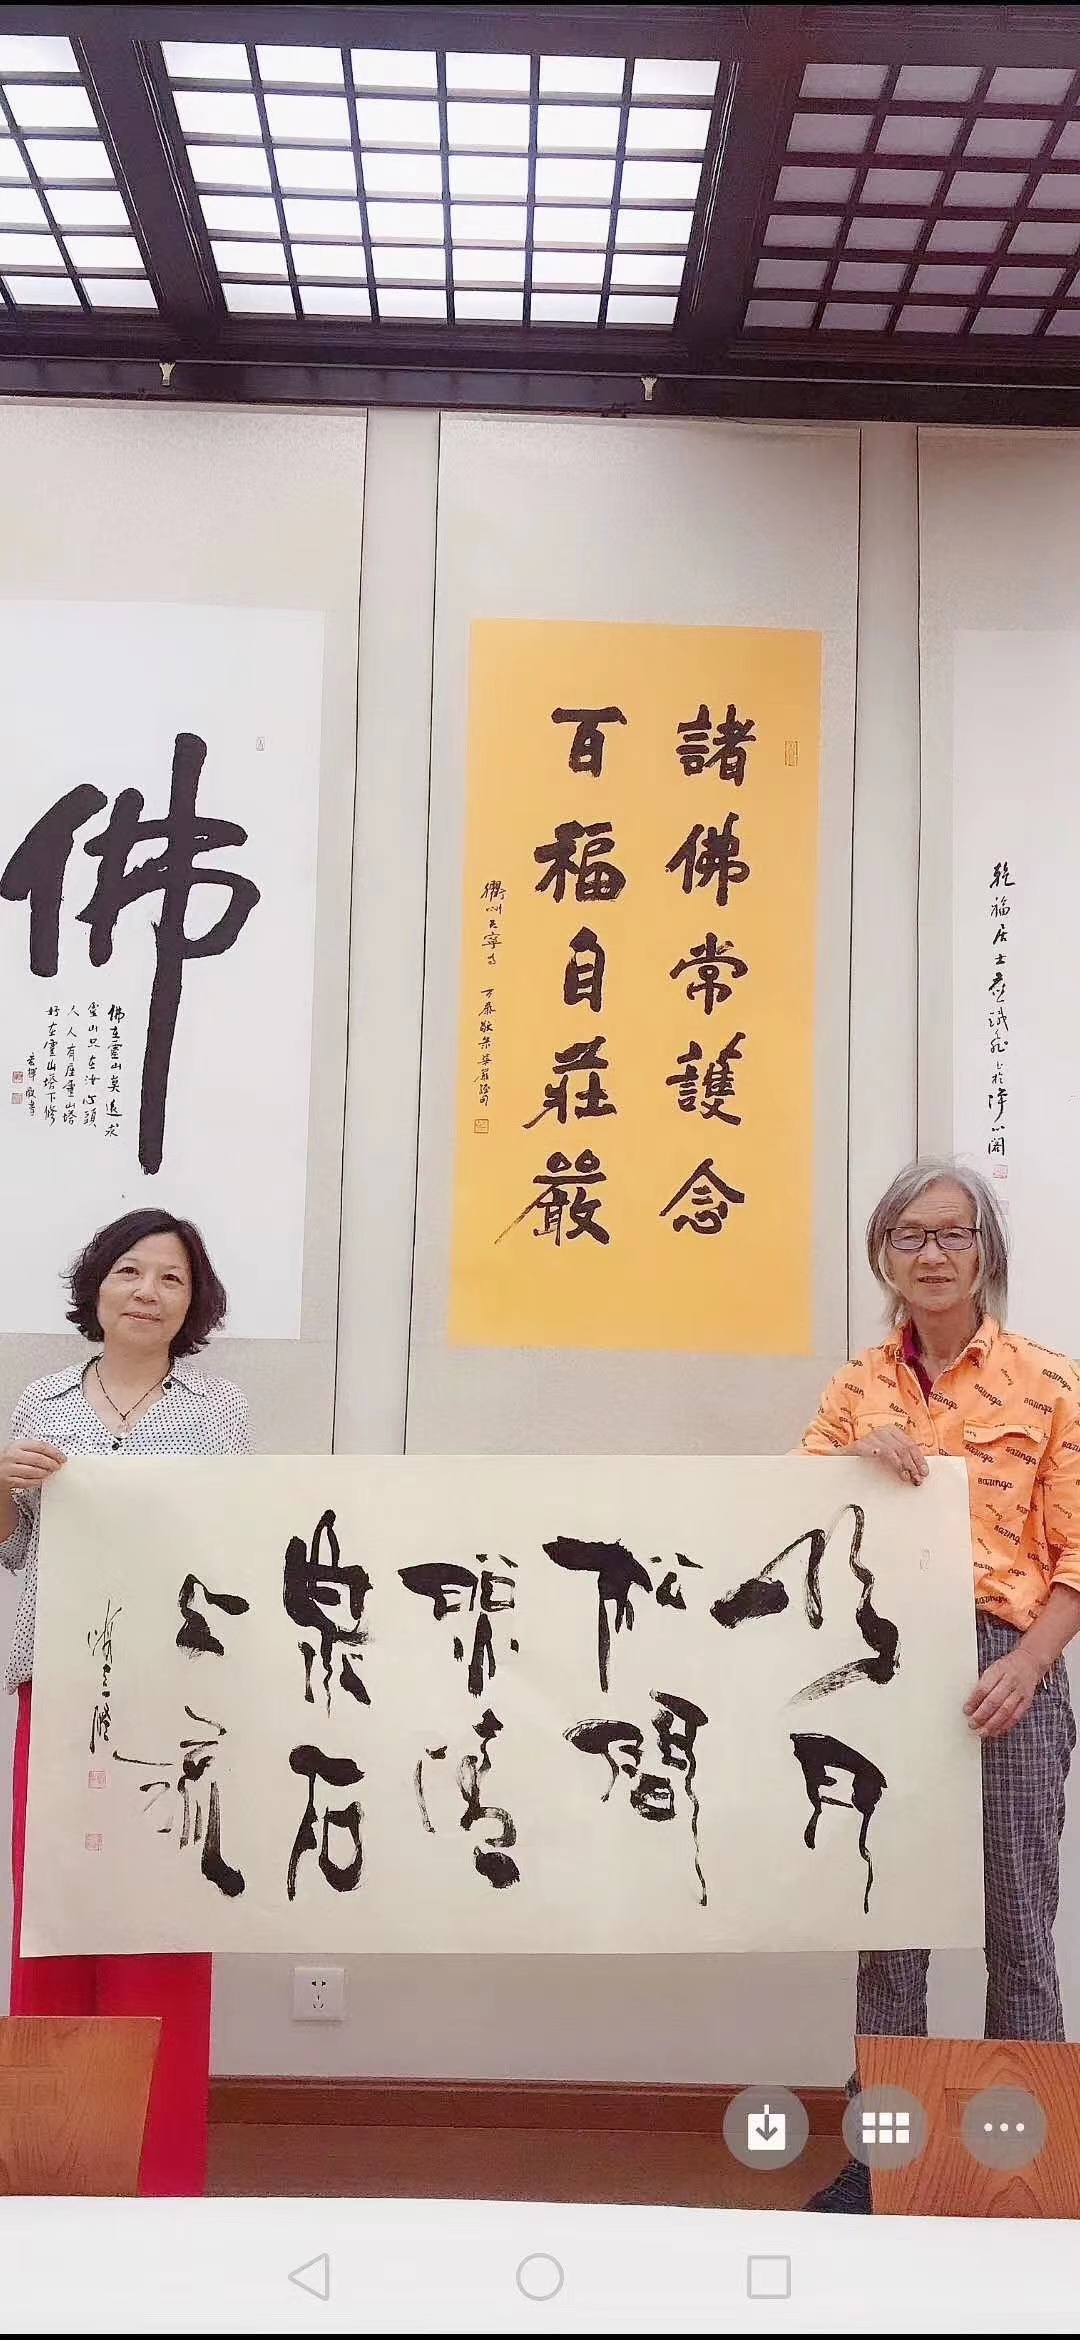 佛
佛在靈山莫遠求
靈山只在汝心頭
人人有座靈山塔
好在靈山塔下修
諸佛常護念
百福自莊嚴
乾福居士
明月
松間
照清
泉石
上流
bazinga